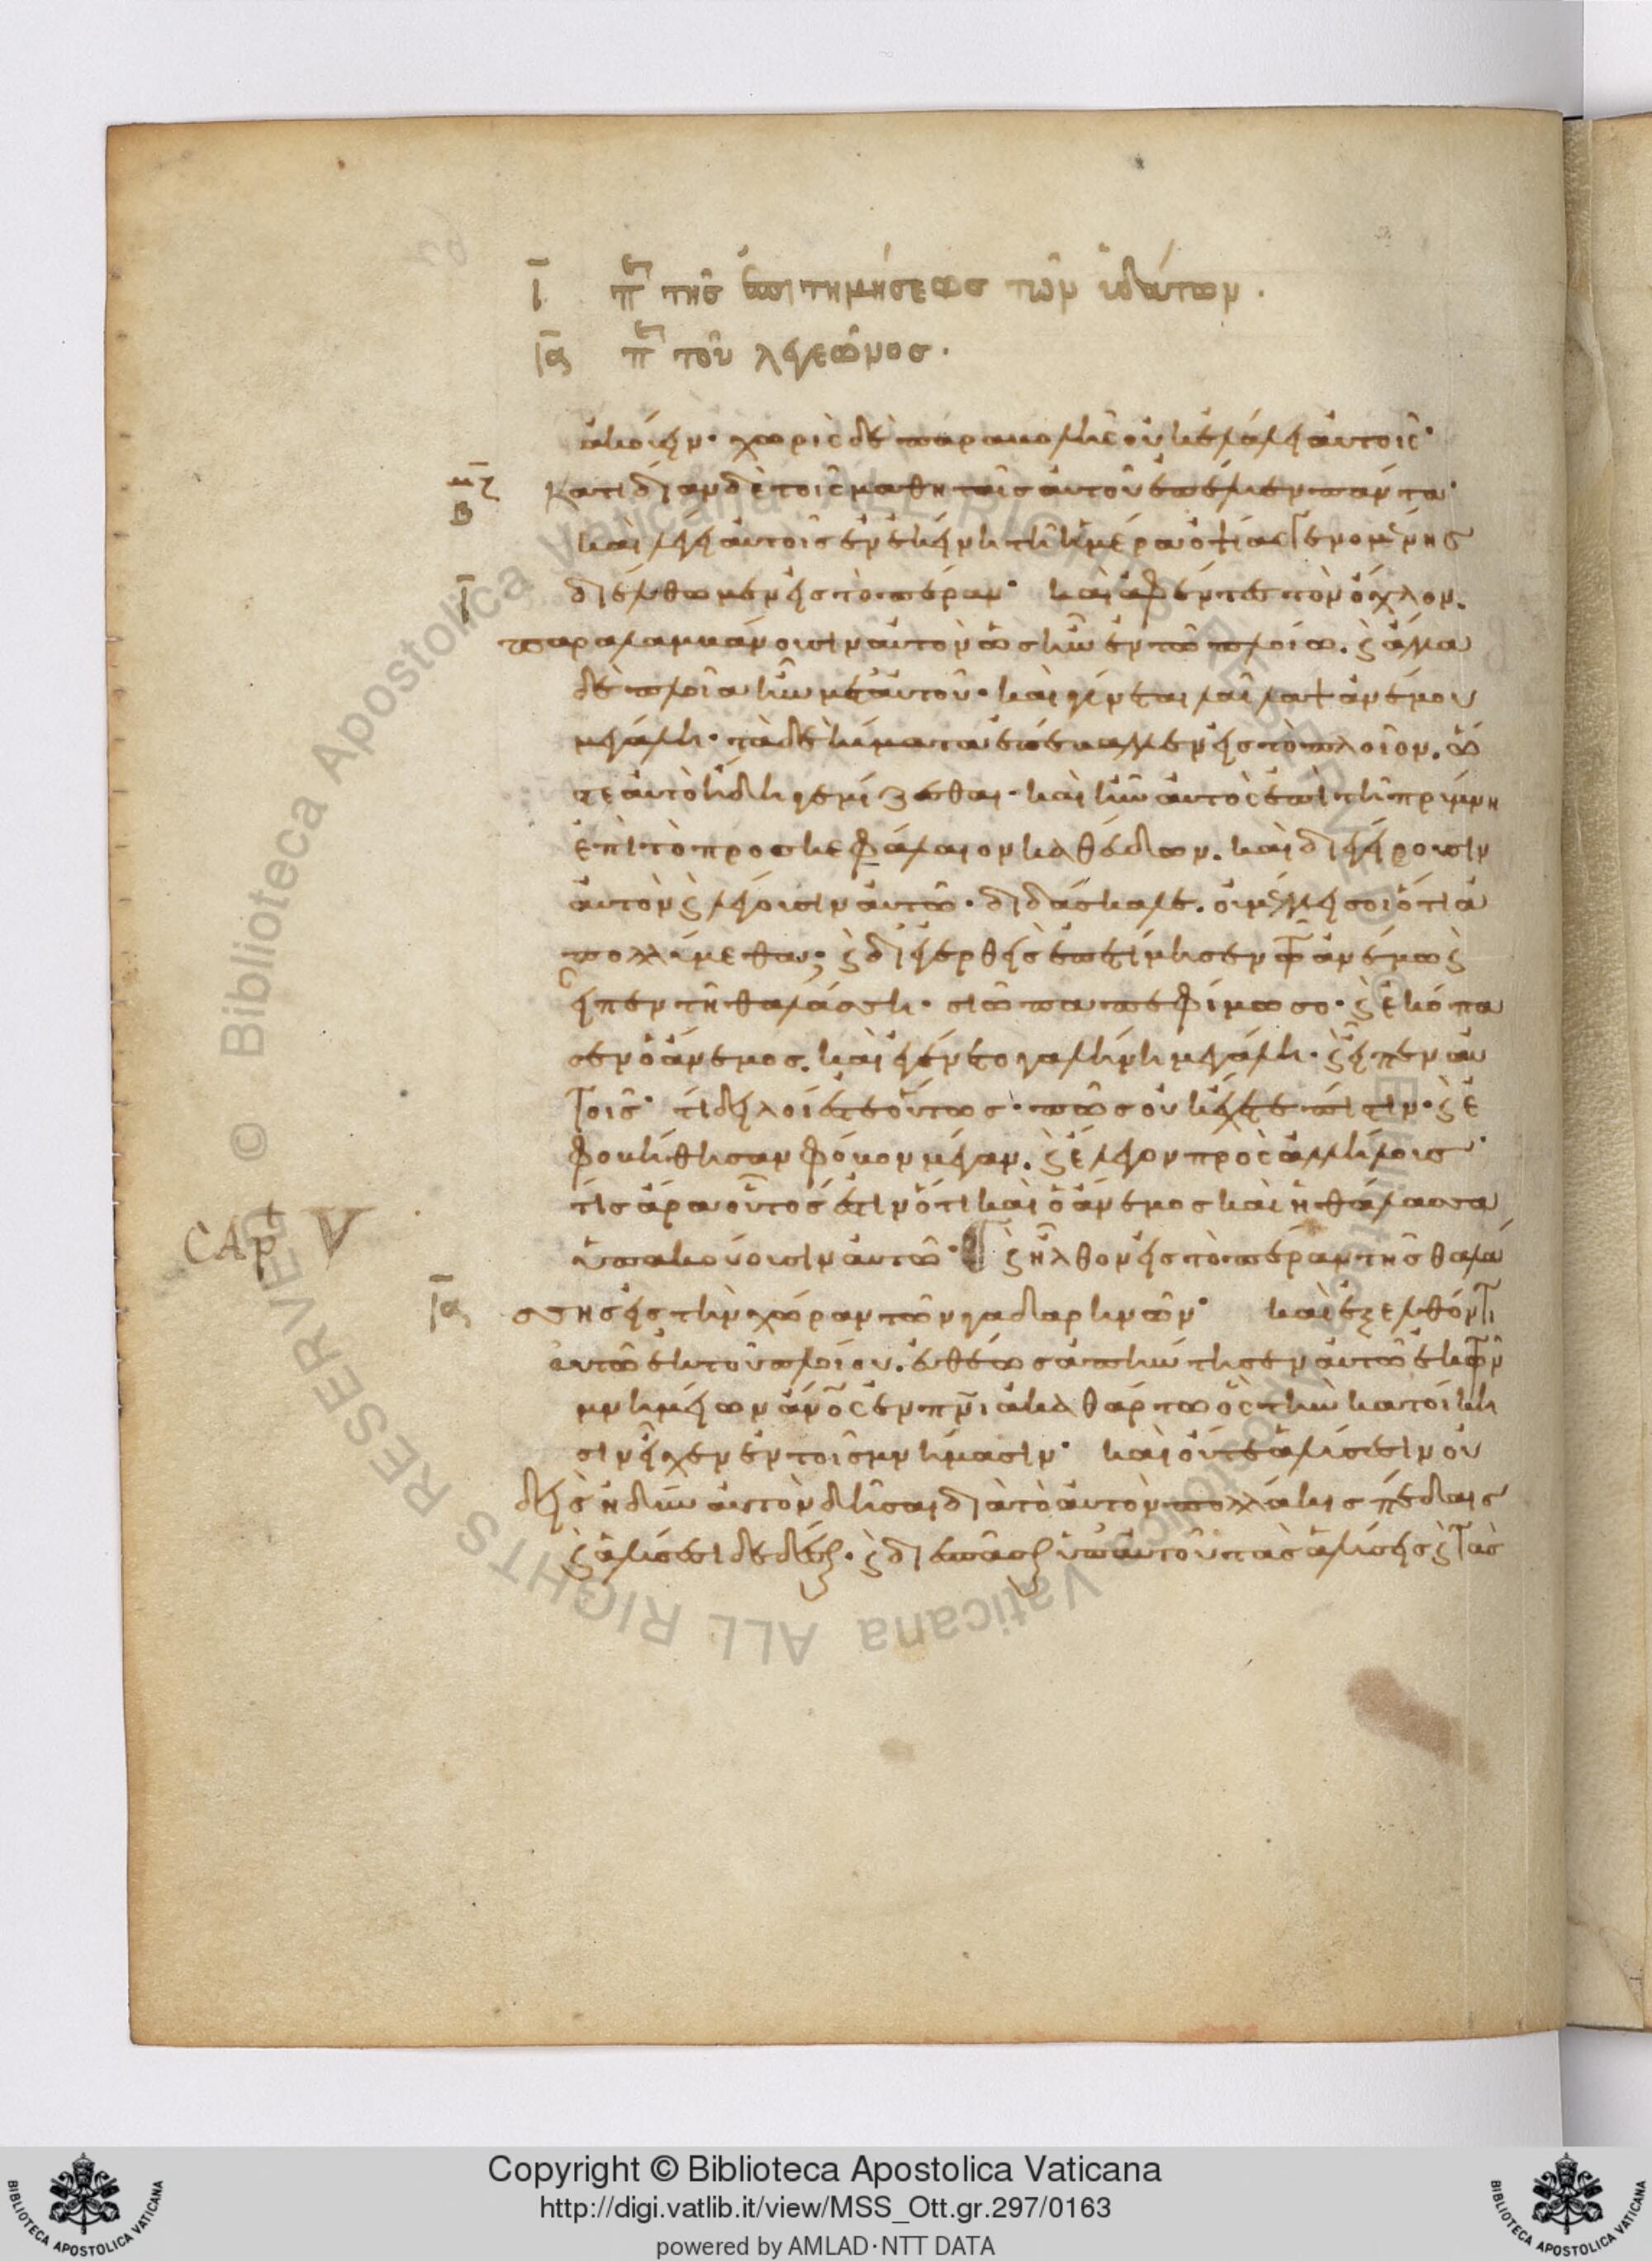 ι̅ π̅ε τῆς ἐπιτημήσεως τῶν ὑδάτων.
ι̅α π̅ε τοῦ λεγεῶνος.
ἀκούειν· χωρὶς δὲ παραβολῆς οὐκ ἐλάλει αὐτοῖς·
μ̅ζ Κατιδίαν δὲ τοῖς μαθηταῖς αὐτοῦ ἐπέλυεν πάντα·
β
καὶ λέγει αὐτοῖς ἐν ἐκείνη τῆ ἡμέρα ὀψίας γενομένης
ι̅ διέλθωμεν εἰς τὸ πέραν· καὶ ἀφέντες τὸν ὄχλον.
παραλαμβάνουσιν αὐτὸν ὡς ἦν ἐν τῶ πλοίω. ϗ ἄλλα
δὲ πλοῖα ἦν μετ' αὐτοῦ· καὶ γίνεται λαῖλαψ ἀνέμου
μεγάλη· τὰ δὲ κύματα ἐπέβαλλεν εἰς τὸ πλοῖον. ὥ
στε αὐτὸ ἤδη γεμίζεσθαι· καὶ ἦν αὐτὸς ἐπὶ τῆ πρύμνη
ἐπὶ τὸ προσκεφάλαιον καθεύδων. καὶ διεγείρουσιν
αὐτὸν ϗ λέγουσιν αὐτῶ· διδάσκαλε. οὐ μέλλει σοι ὅτι ἀ
πολλύμεθα; ϗ διεγερθεὶς ἐπετίμησεν τῶ ἀνέμω ϗ
εἶπεν τῆ θαλάσση· σιώπα πεφίμωσο· ϗ ἐκόπα
σεν ὁ ἄνεμος. καὶ ἐγένετο γαλήνη μεγάλη· ϗ εἶπεν αὐ
τοῖς· τί δειλοί ἐστε οὕτως· πῶς οὐκ ἔχετε πίστιν· ϗ ἐ
φοβήθησαν φόβον μέγαν. ϗ ἔλεγον πρὸς ἀλλήλους·
τίς ἄρα οὗτός ἐστιν ὅτι καὶ ὁ ἄνεμος καὶ ἡ θάλασσα
CAp V ὑπακούουσιν αὐτῶ· ϗ ἦλθον εἰς τὸ πέραν τῆς θαλά
ι̅α σσης εἰς τὴν χώραν τῶν γαδαρηνῶν· καὶ ἐξελθόντι
αὐτῶ ἐκ τοῦ πλοίου. εὐθέως ἀπήντησεν αὐτῶ ἐκ τῶν
μνημείων ἄν̅ο̅ς ἐν π̅ν̅ι ἀκαθάρτω ὃς τὴν κατοίκη
σιν εἶχεν ἐν τοῖς μνήμασιν· καὶ οὔτε ἁλύσεσιν οὐ
δεὶς ἠδύνατο αὐτὸν δῆσαι διὰ τὸ αὐτὸν πολλάκις πέδαις
ϗ ἁλύσεσι δεδέσθ. ϗ διεσπᾶσθ ὑπ' αὐτοῦ τὰς ἁλύσεις ϗ τὰς
Copyright © Biblioteca Apostolica Vaticana
http://digi.vatlib.it/view/MSS_Ott.gr.297/0163
powered by AMLAD·NTT DATA